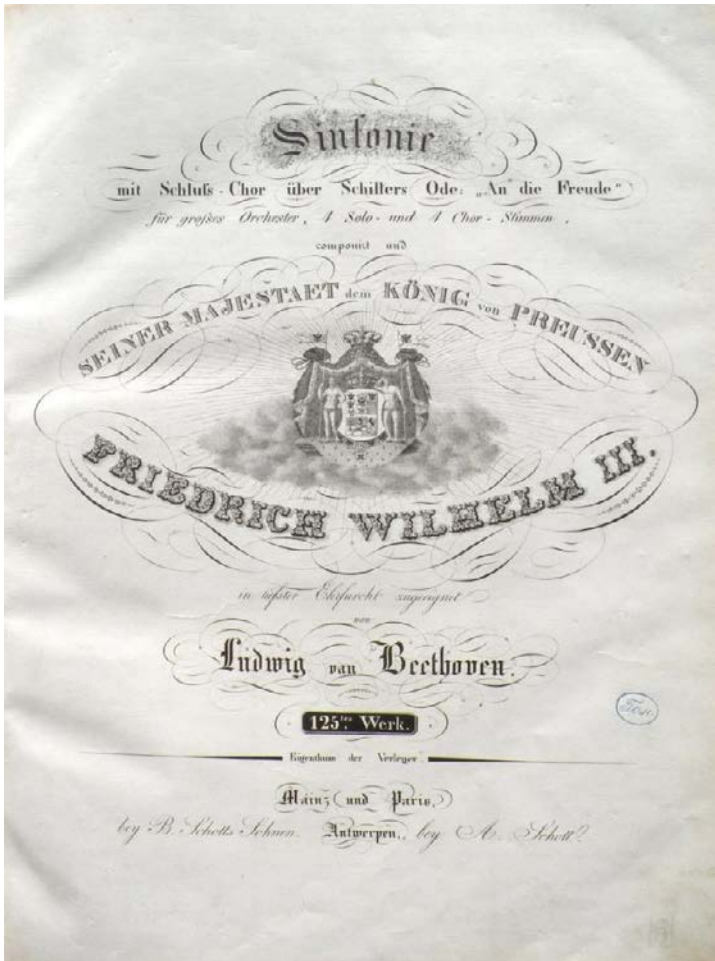 Sinfonie
mit Schluſs-Chor über Schillers Ode: „An die Freude“
für großes Orchester, 4 Solo- und 4 Chor-Stimmen,
componirt und
SEINER MAJESTAET dem KÖNIG von PREUSSEN
FRIEDRICH WILHELM III.
in tiefster Ehrfurcht zugeeignet
von
Ludwig van Beethoven.
125tes Werk.
Eigenthum der Verleger.
Mainz und Paris,
bey B. Schotts Söhnen. Antwerpen, bey A. Schott.